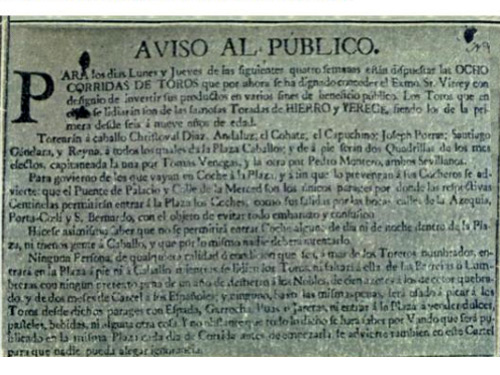 AVISO AL PUBLICO.
PARA los dias Lunes y Jueves de las siguientes quatro semanas están dispuestas las OCHO
CORRIDAS DE TOROS que por ahora se ha dignado conceder el Exmo. Sr. Virrey con
designio de invertir sus productos en varios fines de beneficio público. Los Toros que en
se lidiarán son de las famosas Toradas de HIERRO y YEREGE, siendo los de la pri
mera desde seis á nueve años de edad.
Torearán á caballo Christoval Diaz, Andaluz, el Cohate, el Capuchino; Joseph Porras; Santiago
Gandara, y Reyna, á todos los quales da la Plaza Caballos; y de á pie serán dos Quadrillas de los mas
electos, capitaneada la una por Tomas Venegas, y la otra por Pedro Montero, ambos Sevillanos.
Para govierno de los que vayan en Coche á la Plaza, y á fin que lo prevengan á sus Cocheros se ad
vierte: que el Puente de Palacio y Calle de la Merced son los únicos parages por donde las respectivas
Centinelas permitirán entrar á la Plaza los Coches, como sus salidas por las bocas calles de la Azequia,
Porta-Coeli y S. Bernardo, con el objeto de evitar todo embarazo y confusion.
Hácese asimismo saber que no se permitirá entrar Coche alguno de dia ni de noche dentro de la Pla
za, ni menos gente á Caballo, y que por lo mismo nadie deberá intentarlo.
Ninguna Persona, de qualquiera calidad ó condicion que sea, á mas de los Toreros nombrados, en
trará en la Plaza á pie ni á Caballo ni lidiar los Toros, ni saltará á ella de las Barreras ó Lum
breras con ningun pretexto pena de un año de destierro á los Nobles, de cien azotes á los de color quebra
do, y de dos meses de Carcel á los Españoles; y ninguno, baxo las mismas penas, será osado á picar á los
Toros desde dichos parages con Espada, Garrocha, Puas ó Jaretas, ni entrar á la Plaza á vender dulces,
pasteles, bebidas, ni alguna otra cosa. Y no obstante que todo lo dicho se hará saber por Vando que será pu
blicado en la misma Plaza cada dia de Corrida antes de comenzarla, se advierte tambien en este Cartel
para que nadie pueda alegar ignorancia.